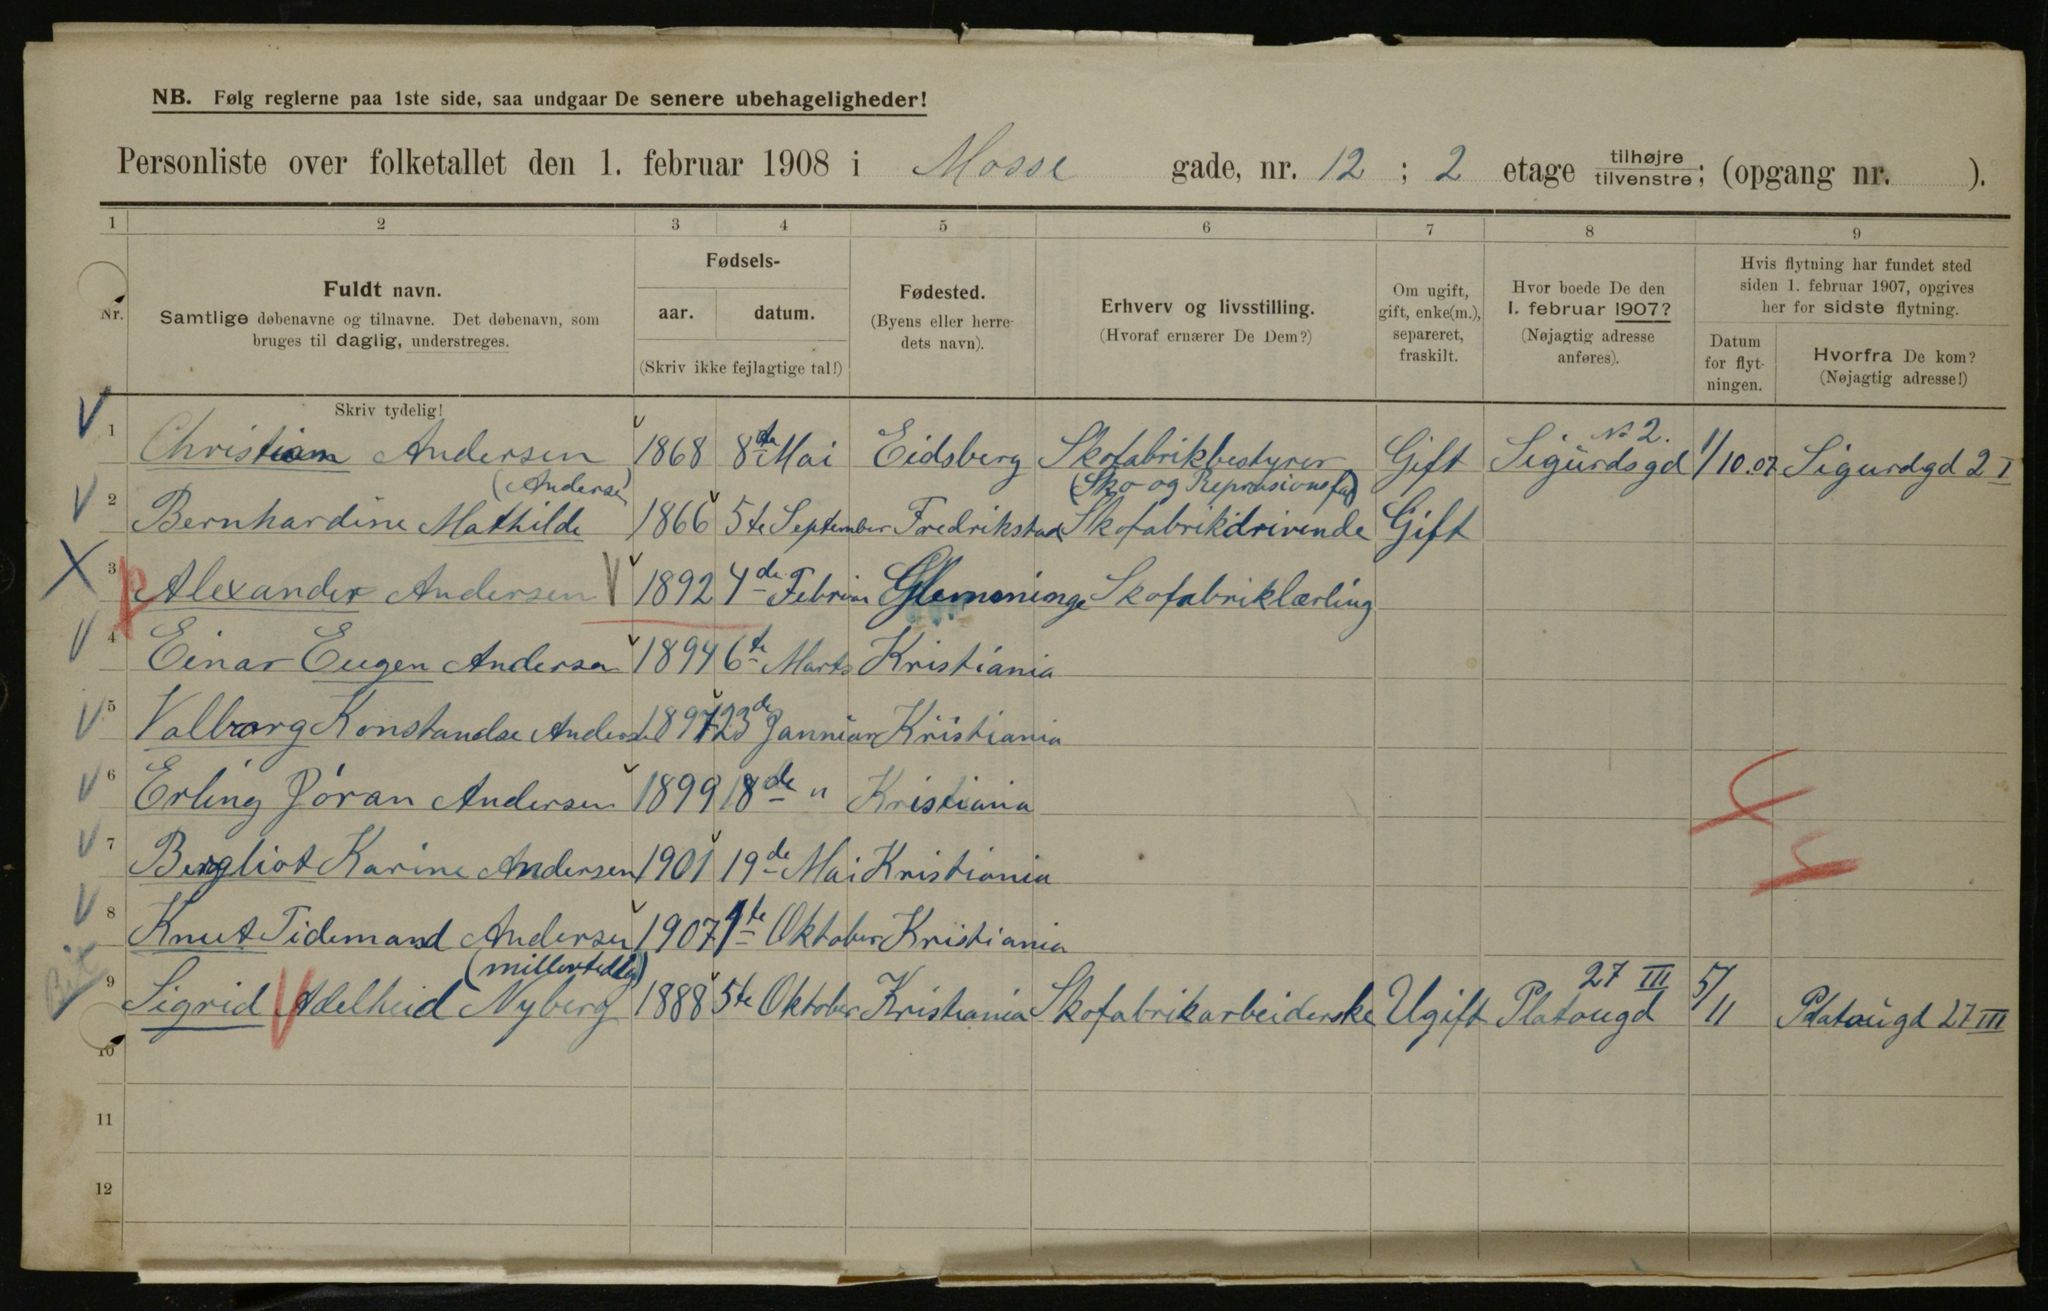 NB. Følg reglerne paa 1ste side, saa undgaar De senere ubehageligheder!
Personliste over folketallet den 1. februar 1908 i Mosse gade, nr. 12 ; 2 etage tilhøjre tilvenstre; (opgang nr. ).
1 2 3 4 5 6 7 8 9
Nr.
Fuldt navn.
Samtlige døbenavne og tilnavne. Det døbenavn, som
bruges til daglig, understreges.
Fødsels-
aar. datum.
(Skriv ikke fejlagtige tal!)
Fødested.
(Byens eller herre-
dets navn).
Erhverv og livsstilling.
(Hvoraf ernærer De Dem?)
Om ugift,
gift, enke(m.),
separeret,
fraskilt.
Hvor boede De den
1. februar 1907?
(Nøjagtig adresse
anføres).
Hvis flytning har fundet sted
siden 1. februar 1907, opgives
her for sidste flytning.
Datum
for flyt-
ningen.
Hvorfra De kom?
(Nøjagtig adresse!)
Skriv tydelig!
No 2.
1 Christian Andersen 1868 8de Mai Eidsberg Skofabrikbestyrer Gift Sigurdsgd 1/10.07 Sigurdgd 2 I
(Andersen) (Sko og
2 Bernhardine Mathilde 1866 5te September Fredrikstad Skofabrikdrivende Gift
3 Alexander Andersen 1892 4de Februar Glemminge Skofabriklærling
4 Einar Eugen Andersen 1894 6te Marts Kristiania
5 Valborg Konstandse Andersen 1897 23de Januar Kristiania
6 Erling Jöran Andersen 1899 18de " Kristiania
7 Bergliot Karine Andersen 1901 19de Mai Kristiania
8 Knut Tidemand Andersen 1907 1te Oktober Kristiania
(millertedig) 27 III
9 Sigrid Adelheid Nyberg 1888 5te Oktober Kristiania Skofabrikarbeiderske Ugift Platougd 5/11 Platougd 27 III
10
11
12